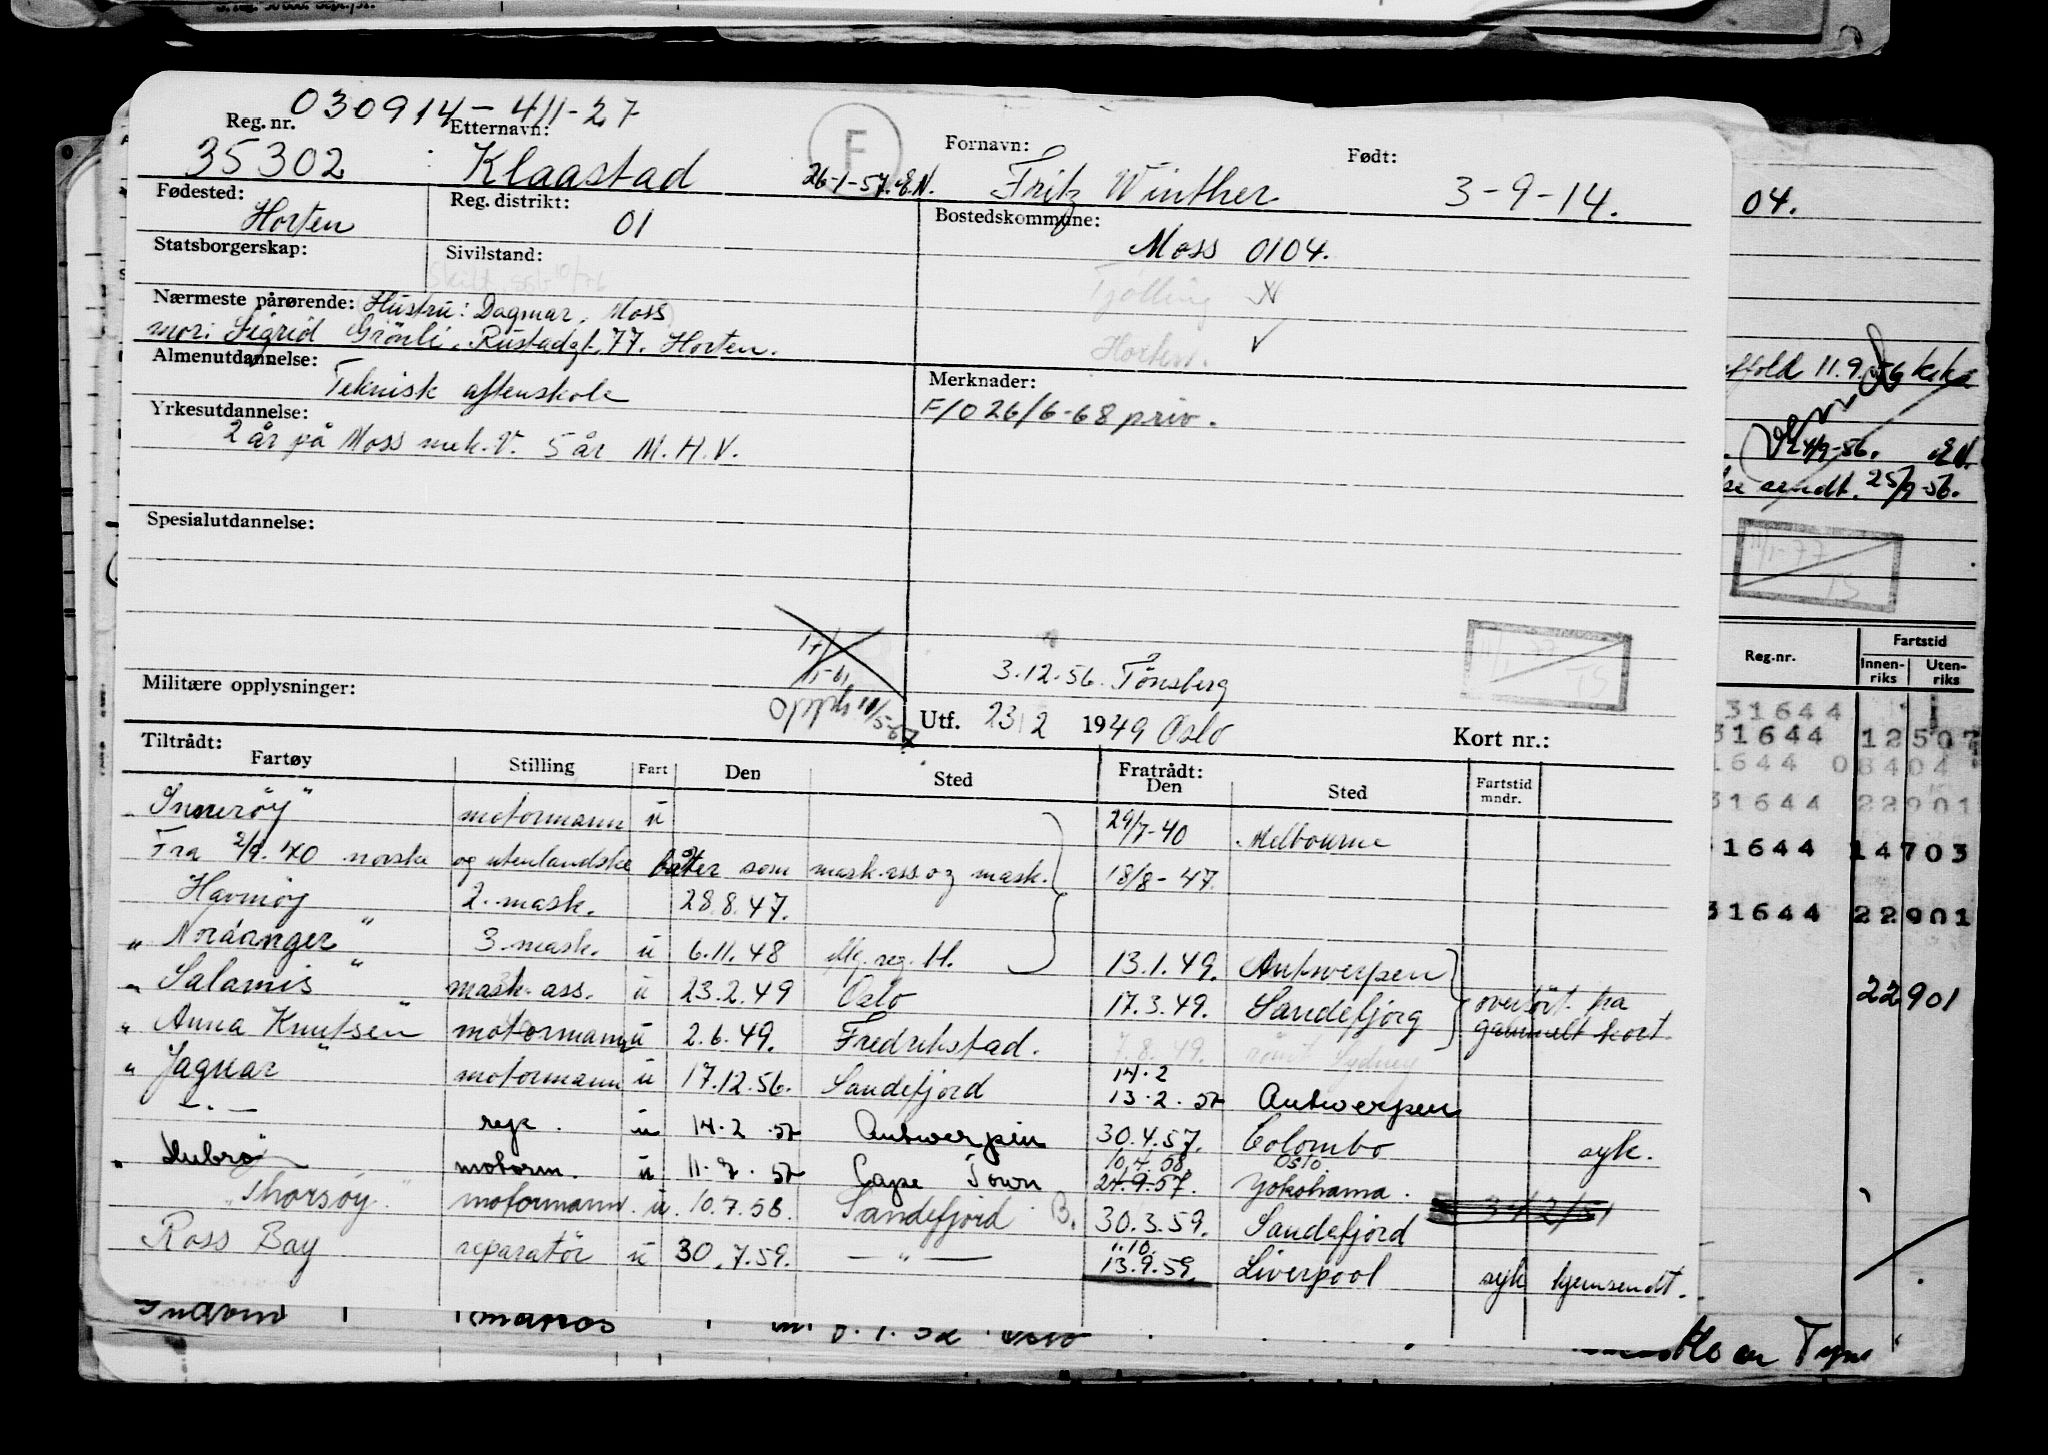 030914-411-27
Reg. nr. Etternavn: F Fornavn: Født:
35302 Klaastad 26-1-57. E.N. Fritz Winther 3-9-14.
Fødested: Reg. distrikt: Bostedskommune:
Horten 01 Moss 0104.
Statsborgerskap: Sivilstand:
Tjølling
Nærmeste pårørende: Hustru: Dagmar, Moss
mor: Sigrid Grönli, Rustadgt. 77. Horten. Horten.
Almenutdannelse: Merknader:
Teknisk aftenskole F/O 26/6-68 priv.
Yrkesutdannelse:
2 år på Moss mek. V. 5 år M. H. V.
Spesialutdannelse:
3.12.56. Tönsberg
Militære opplysninger:
Utf. 23/2 1949 Oslo Kort nr.:
Tiltrådt: Fratrådt:
Fartøy Stilling Fart Den Sted Den Sted Fartstid mndr.
"Inneröy" motormann u 29/7-40 Melbourne
Fra 2/9.40 norske og utenlandske båter som mask.ass. og mask. 18/8-47.
Havmöy 2. mask. 28.8.47.
" Nordanger " 3. mask. u 6.11.48 13.1.49. Antwerpen
" Salamis " mask. ass. u 23.2.49 Oslo 17.3.49. Sandefjorg overfört fra
gammelt kort
" Anna Knutsen " motormann u 2.6.49. Fredrikstad. 7.8.49. römt Sydney
" Jaguar " motormann u 17.12.56. Sandefjord 14.2
13.2.57 Antwerpen
— " — rep. u 14.2.57 Antwerpen 30.4.57. Colombo syk.
" Hubro motorm. u 11.7.57 Cape Town 10.4.58. Oslo.
24.9.57. Yokohama.
"Thorsöy" motormann. u. 10.7.58. Sandefjord B. 30.3.59. Sandefjord
Ross Bay reparatör u 30.7.59. — " — 1.10.
13.9.59. Liverpool syk hjemsendt.
04.
11.9.56
24/9-56. E.N.
sendt. 25/9-56.
11/1-77
TS
Reg.nr. Fartstid
Innenriks Utenriks
31644
31644 12507
1644 08404
31644 22901
1644 14703
31644 22901
22901